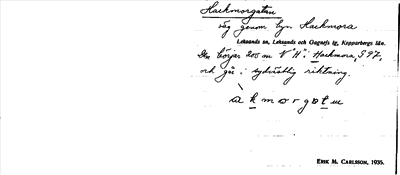 Hackmorgatan
väg genom byn Hackmora
Leksands sn, Leksands och Gagnefs tg, Kopparbergs län.
Den börjar 200 m V "H" i Hackmora, S 97,
och går i sydvästlig riktning.
àkmorgatu
ERIK M. CARLSSON, 1935.